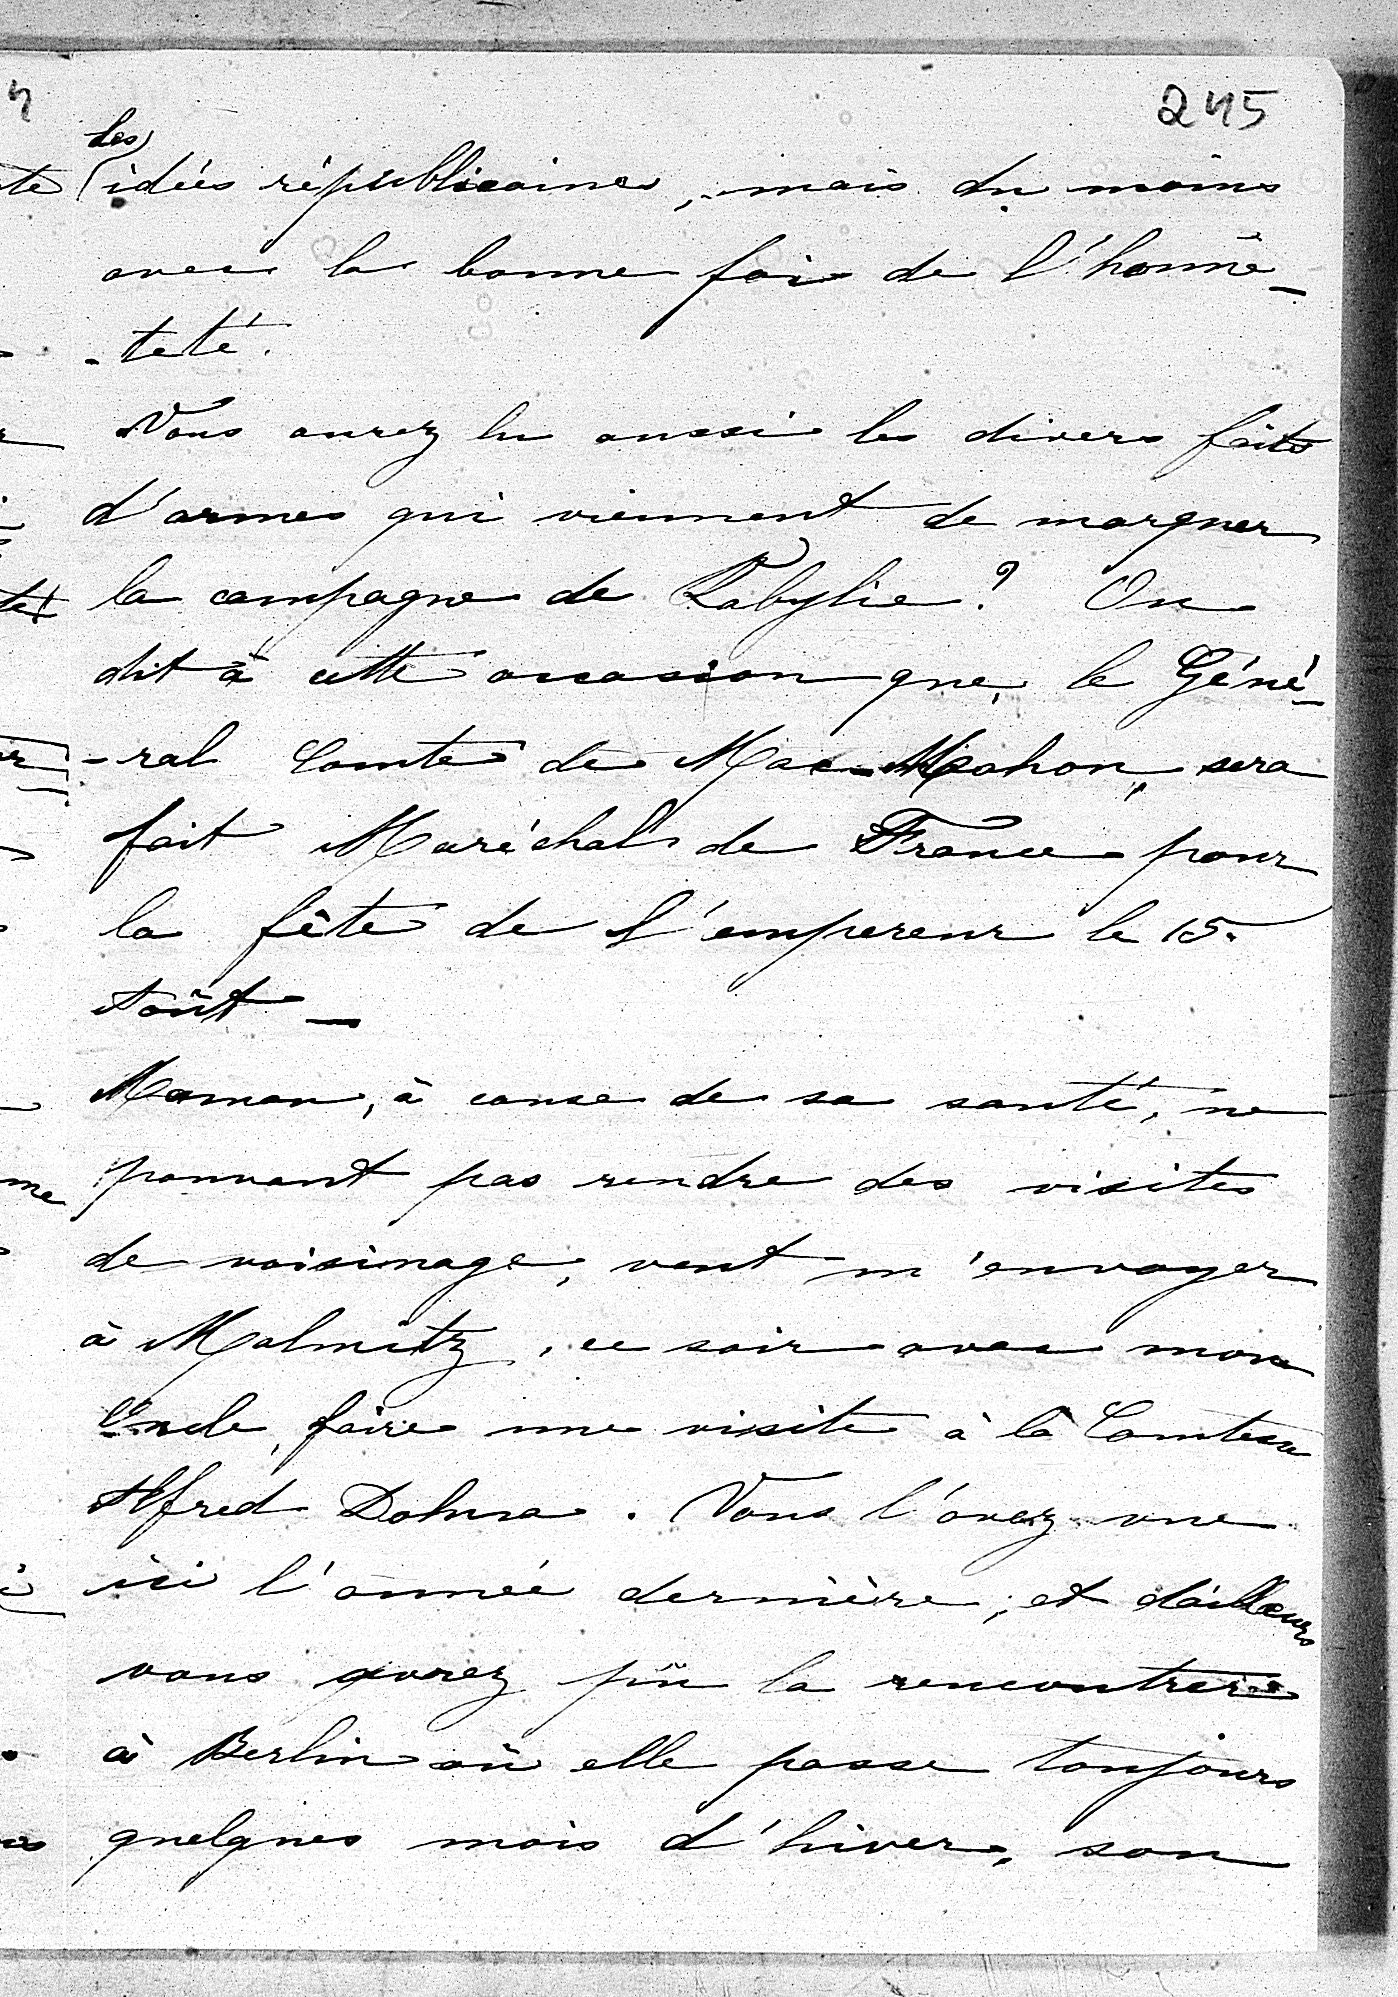 245
les
idées républicaines, mais du moins
avec la bonne foi de l'honnê-
-teté.
Vous aurez lu aussi les divers faits
d'armes qui viennent de marquer
la campagne de Kabylie? On
dit à cette occasion que le Géné-
-ral Comte de Mac-Mahon, sera
fait Maréchal de France pour
la fête de l'empereur le 15.
Août —
Maman, à cause de sa santé, ne
pouvant pas rendre des visites
de voisinage, veut m'envoyer
à Malmitz, ce soir avec mon
Oncle, faire une visite à la Comtesse
Alfred Dohna. Vous l'avez vue
ici l'année dernière, et d'ailleurs
vous aurez pû la rencontrer
à Berlin où elle passe toujours
quelques mois d'hiver, son